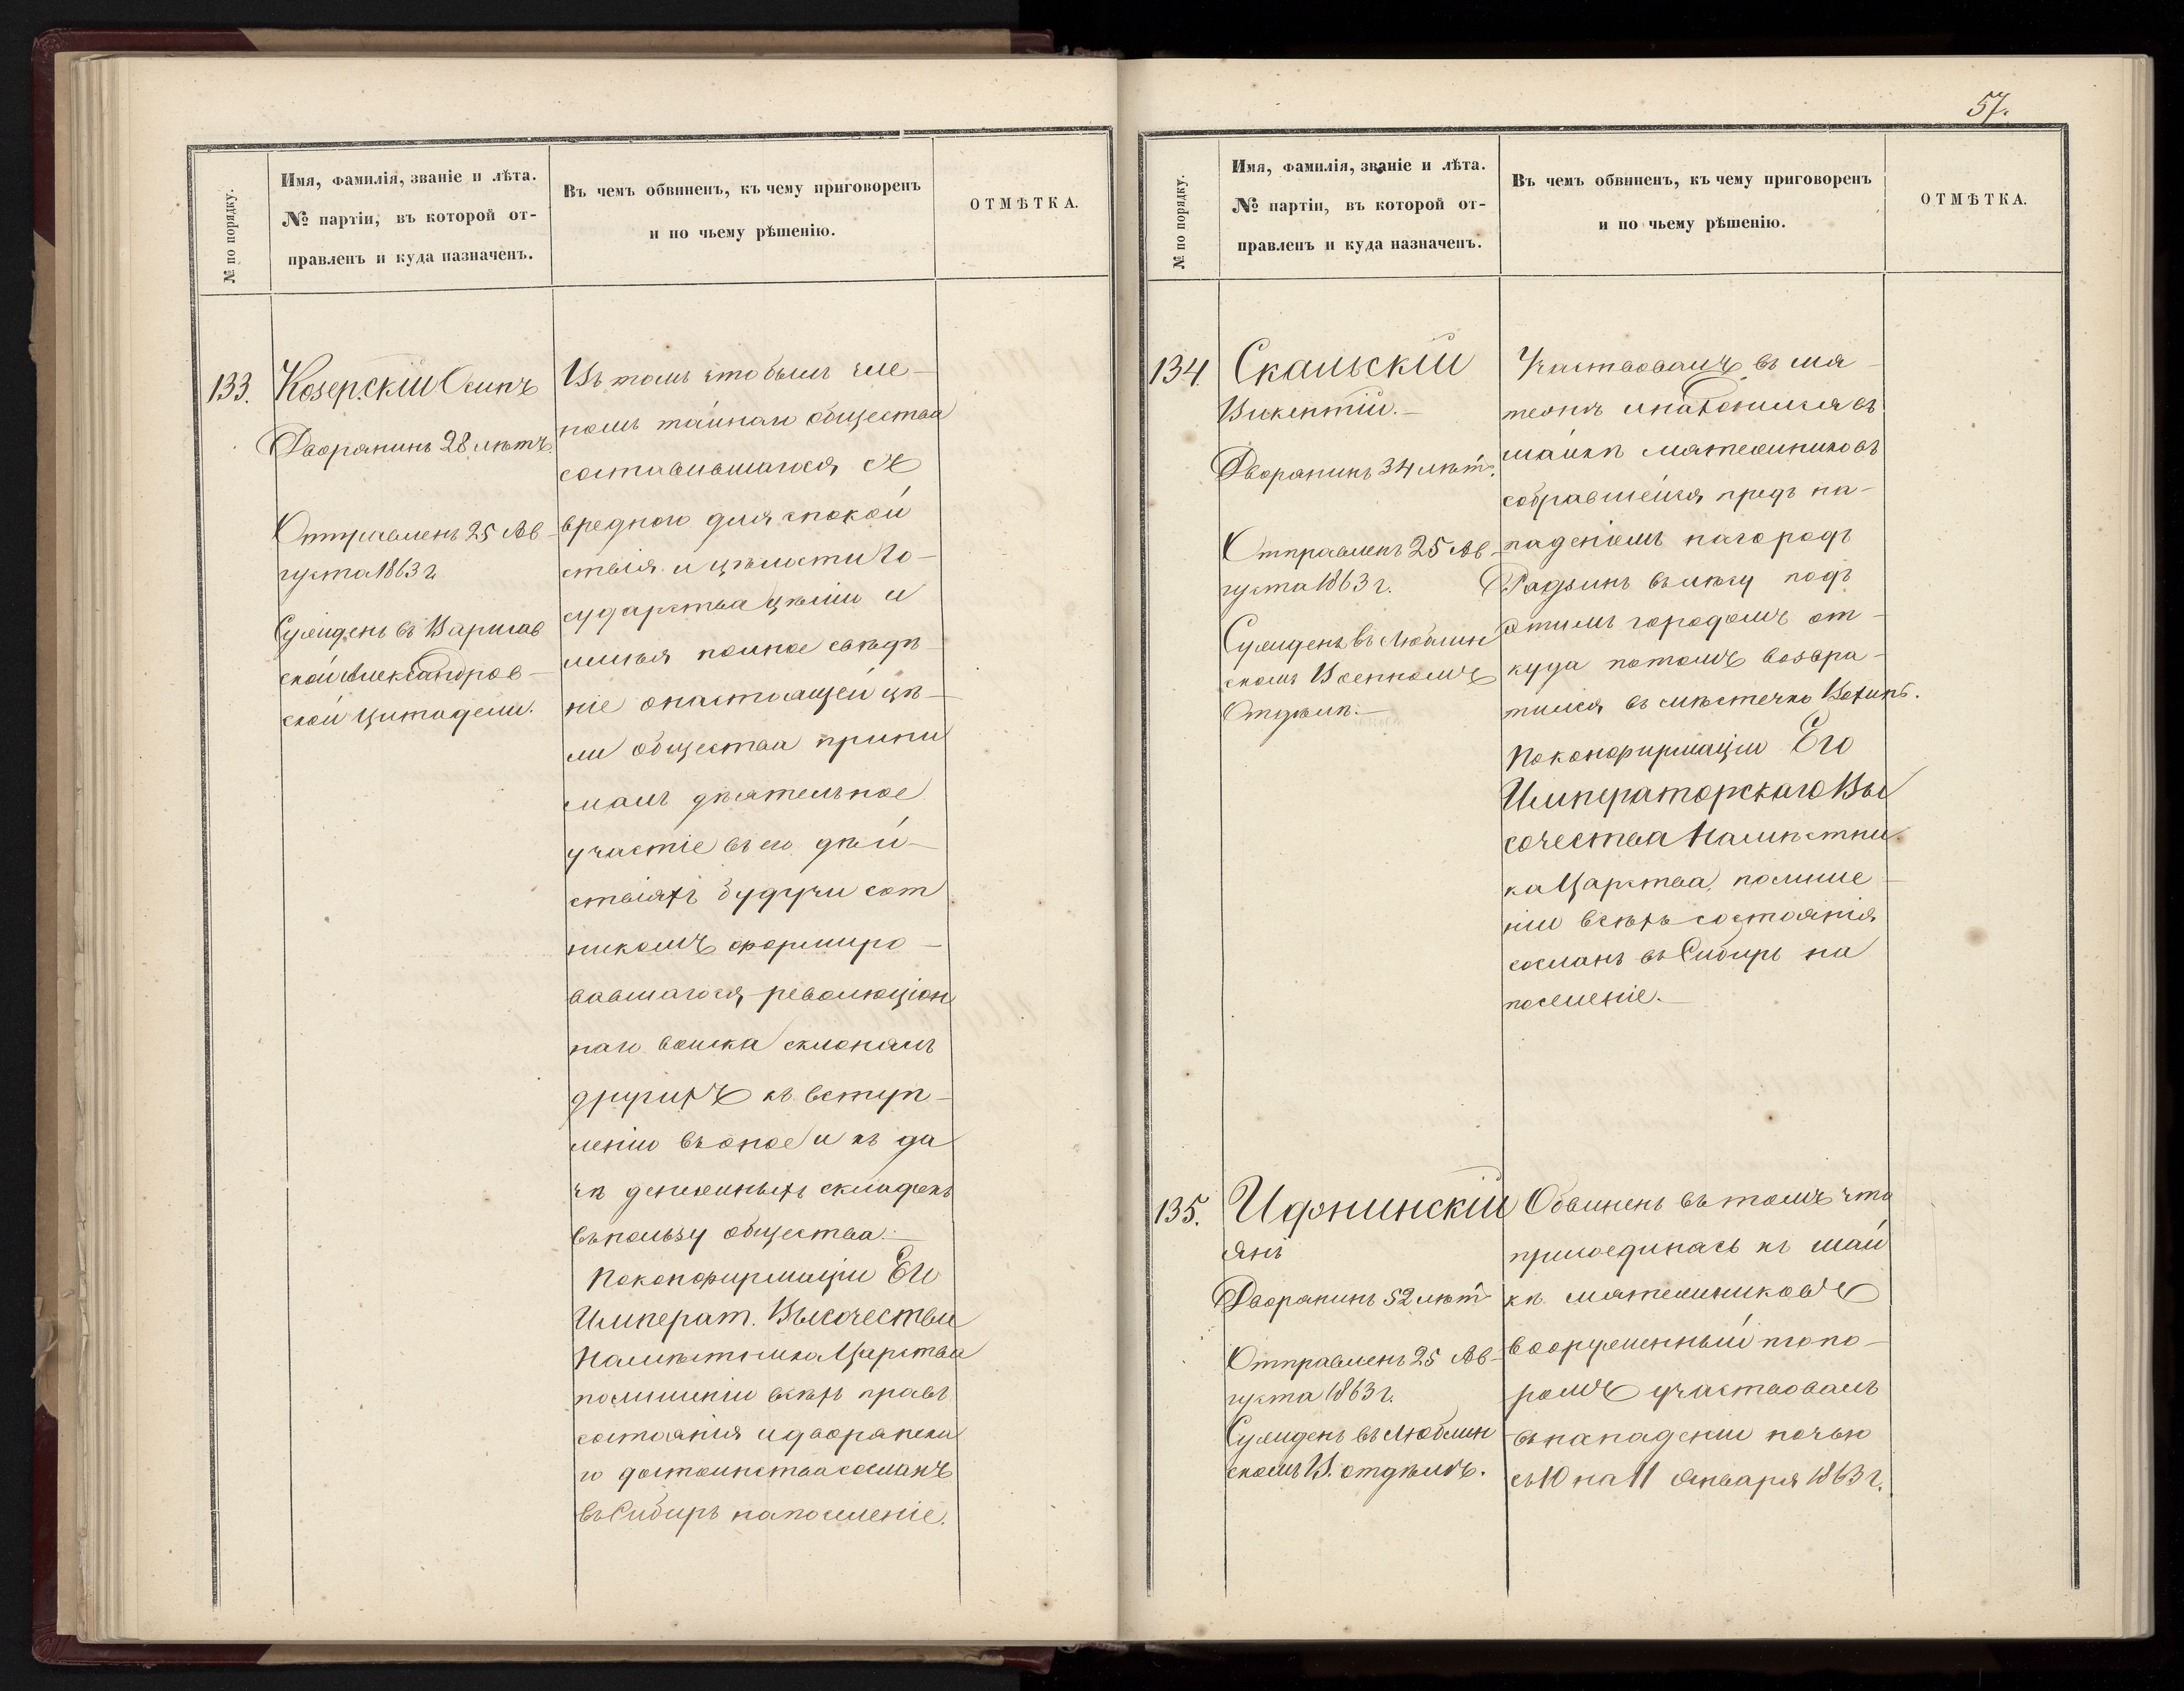 № по порядку.
Имя, фамилія, званіе и лѣта.
№ партіи, въ которой от-
правленъ и куда назначенъ.
Въ чемъ обвиненъ, къ чему приговоренъ
и по чьему рѣшенію.
ОТМѢТКА.
133.
Козерскій Осипъ
Дворянинъ 28 лѣтъ.
Отправленъ 25 Ав-
густа 1863 г.
Сужденъ въ Варшав
ской Александров-
ской Цитадели.
Въ томъ что былъ чле-
номъ тайнаго общества
составившагося съ
вредною для спокой
ствія и цѣлости Го-
сударства цѣлію и
имѣя полное свѣдѣ-
ніе о настоящей цѣ-
ли общества прини
малъ дѣятельное
участіе въ его дѣй-
ствіяхъ будучи сот
никомъ формиро-
вавшагося революціон
наго войска склонялъ
другихъ къ вступ-
ленію въ оное и къ да
чѣ денежныхъ складокъ
въ пользу общества.—
По конфирмаціи Его
Императ. Высочества
Намѣстника Царства
по лишеніи всѣхъ правъ
состоянія и дворянска
го достоинства сосланъ
въ Сибирь на поселеніе.
57.
№ по порядку.
Имя, фамилія, званіе и лѣта.
№ партіи, въ которой от-
правленъ и куда назначенъ.
Въ чемъ обвиненъ, къ чему приговоренъ
и по чьему рѣшенію.
ОТМѢТКА.
134.
Скальскій
Викентій.—
Дворянинъ 34 лѣтъ.
Отправленъ 25 Ав-
густа 1863 г.
Сужденъ въ Люблин
скомъ Военномъ
Отдѣлѣ.—
Участвовалъ въ мя-
тежѣ и находился въ
шайкѣ мятежниковъ
собравшейся предъ на-
паденіемъ на городъ
Радзынь въ лѣсу подъ
этимъ городомъ от-
куда потомъ возвра-
тился въ мѣстечко Вохинь.
По конфирмаціи Его
Императорскаго Вы
сочества Намѣстни
ка Царства, по лише-
ніи всѣхъ состоянія
сосланъ въ Сибирь на
поселеніе.—
135.
Ифнинскій
Янъ
Дворянинъ 52 лѣтъ
Отправленъ 25 Ав-
густа 1863 г.
Сужденъ въ Люблин
скомъ В. отдѣлѣ.
Обвиненъ въ томъ что
присоединясь къ шай
кѣ мятежниковъ
вооруженный топо-
ромъ участвовалъ
въ нападеніи ночью
съ 10 на 11 Января 1863 г.